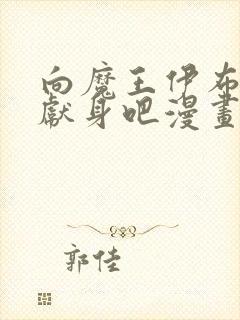 向魔王伊布
獻身吧漫畫
郭佳